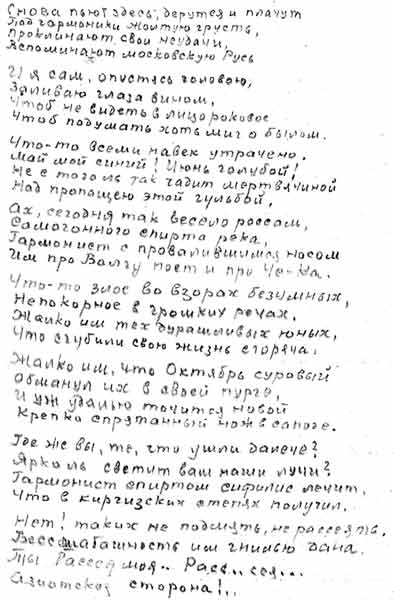 Снова пьют здесь, дерутся и плачут
Под гармоники жолтую грусть,
Проклинают свои неудачи,
Вспоминают московскую Русь
И я сам, опустясь головою,
Заливаю глаза вином,
Чтоб не видеть в лицо роковое
Чтоб подумать хоть миг о былом.
Что-то всеми навек утрачено.
Май мой синий! Июнь голубой!
Не с того ль так чадит мертвячиной
Над пропащею этой гульбой,
Ах, сегодня так весело россам,
Самогонного спирта река,
Гармонист с провалившимся носом
Им про Волгу поет и про Че-Ка.
Что-то злое во взорах безумных,
Непокорное в громких речах.
Жалко им тех дурашливых юных,
Что сгубили свою жизнь сгоряча.
Жалко им, что Октябрь суровый
Обманул их в своей пурге,
И уж удалью точится новой
Крепко спрятанный нож в сапоге.
Где же вы, те, что ушли далече?
Ярко ль светят вам наши лучи?
Гармонист спиртом сифилис лечит,
Что в киргизских степях получил.
Нет! таких не подмять, не рассеять.
Бесшабашность им гнилью дана.
Ты Рассея моя.. Расс..сея...
Азиатская сторона!..